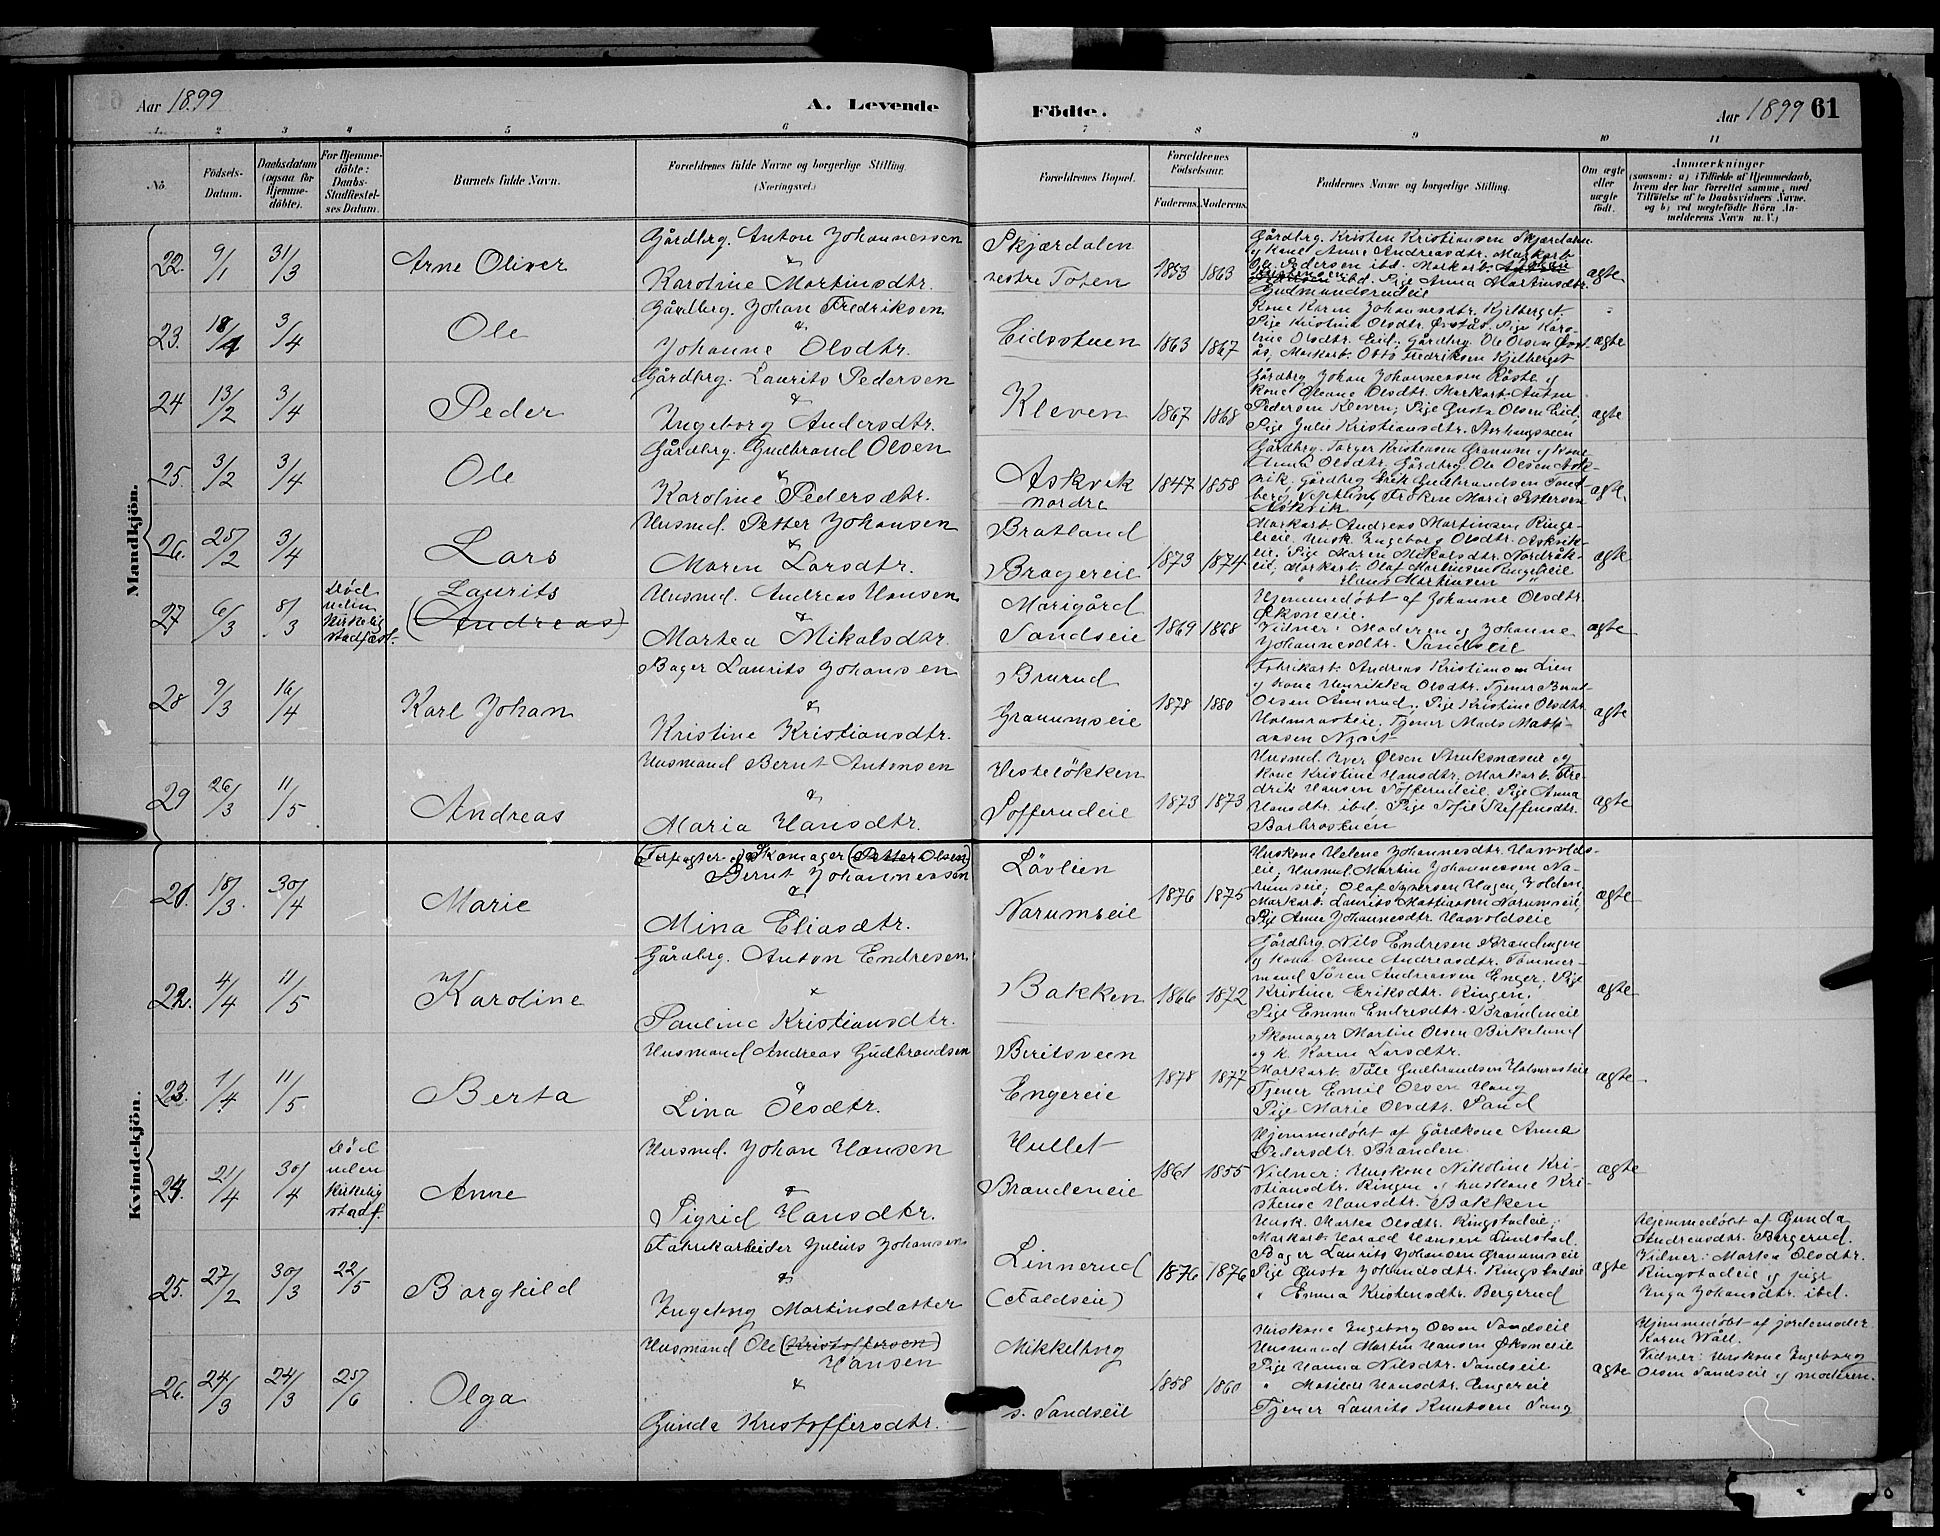 Aar 1899
A. Levende
Födte.
Aar 1899 61
1. 2 3 4 5 6 7 8 9 10 11
No.
Födsels-Datum.
Daabsdatum (ogsaa för Hjemmedöbte).
For Hjemmedöbte: Daabs-Stadfæstelses Datum.
Barnets fulde Navn.
Forældrenes fulde Navne og borgerlige Stilling (Næringsvei.)
Forældrenes Bopæl.
Forældrenes Födselsaar.
Faderens. Moderens.
Faddernes Navne og borgerlige Stilling.
Om ægte eller uægte født.
Anmærkninger
(saasom: a) i Tilfælde af Hjemmedaab,
hvem der har forrettet samme, med
Tilföielse af to Daabsvidners Navne.
og b) ved uægtefödte Börn An-
melderens Navn m. V.)
Mandkjön.
22. 9/1 31/3 Arne Oliver
Gårdbrg. Anton Johannessen
&
Karoline Martinsdtr.
Skjærdalen
vestre Toten
1853 1863
Gårdbrg. Kristen Kristiansen Skjærdalen
og Kone Anne Andreasdtr. Markarb.
Ole Pedersen ibd. Markarb.
ibd. Pige Anna Martinsdtr.
Gudmundsrudeie
ægte
23. 18/1 3/4 Ole
Gårdbrg. Johan Fredriksen
&
Johanne Olsdtr.
Eidsstuen
1863 1867
Kone Karen Johannesdtr. Kjelberget
Pige Kristine Olsdtr. Øvstås. Pige Karo-
line Olsdtr. Eid. Gårdbrg. Ole Olsen Øvst-
ås, Markarb. Otto Fredriksen Kjelberget
ægte
24 13/2 3/4 Peder
Gårdbrg. Laurits Pedersen
&
Ingeborg Andersdtr.
Kleven
1867 1868
Gårdbrg Johan Johannessen Røste og
Kone Oleane Olsdtr. Markarb. Anton
Pedersen Kleven; Pige Gusta Olsen Eid,
Pige Julie Kristiansdtr.
ægte
25. 3/2 3/4 Ole
Gårdbrg. Gudbrand Olsen
&
Karoline Pedersdtr.
Askvik
nordre
1847 1858
Gårdbrg. Torger Kristensen Granum og Kone
Anna Olsdtr. Gårdbrg. Ole Olsen Ask-
vik. Gårdbrg Erik Gudbrandsen Sand
berg, Frøken Marie Pettersen
Askvik
ægte.
26. 25/2 3/4 Lars
Husmd. Petter Johansen
&
Maren Larsdtr.
Bratland
Bragereie
1873 1874
Markarb. Andreas Martinsen Ringe-
lieie. Husk. Ingeborg Olsdtr. Askvik-
eie. Pige Maren Mikalsdtr. Nordråk-
eie; Markarb. Olaf Martinsen Ringelieie
" Hans Martinsen "
ægte
27 6/3 8/3
Død
uden
kirkelig
stadfæst.
Laurits
(Andreas)
Husmd. Andreas Hansen
&
Martea Mikalsdtr.
Marigård
Sandseie
1869 1868
Hjemmedøbt af Johanne Olsdtr.
Øksneeie.
Vidner: Moderen og Johanne
Johannesdtr. Sandseie
ægte
28 9/3 16/4 Karl Johan
Bager Laurits Johansen
&
Kristine Kristiansdtr.
Brurud
Granumseie
1878 1880
Fabrikarb. Andreas Kristiansen Lien
og Kone Henrikka Olsdtr. Tjener Bernt
Olsen Ånerud. Pige Kristine Olsdtr
Holmrasteie. Tjener Mads Mathi-
assen
ægte
29 26/3 11/5 Andreas
Husmand Bernt Antonsen
&
Maria Hansdtr.
Vesteløkken
Sofferudeie
1873 1873
Husmd. Iver Olsen og
Kone Kristine Hansdtr, Markarb. Fre-
drik Hansen Sofferudeie, Pige Anna
Hansdtr. ibd. Pige Sofie Steffensdtr.
Barbrostuen
ægte
Kvindekjön.
21. 18/3. 30/4 Marie
(Forpagter og) Skomager (Petter Olsen)
Bernt Johannessen
&
Mina Eliasdtr.
Løvlien
Narumseie
1876 1875
Huskone Helene Johannesdtr. Hasvolds-
eie; Husmd. Martin Johannessen Na-
rumseie; Olaf Syversen Hagen, Kolden,
Markarb. Laurits Mathiasen Narumseie,
Pige Anna Johannesdtr. Hasvoldseie
ægte
22. 4/4 11/5 Karoline
Gårdbrg. Anton Endresen
&
Pauline Kristiansdtr.
Bakken
1866 1872
Gårdbrg Nils Endresen Brandengen
og Kone Anne Andreasdtr. Tømmer-
mand Søren Andreassen Enger, Pige
Kristine Eriksdtr. Ringen.
Pige Emma Endresdtr. Brandeneie
ægte
23. 1/4 11/5 Berta
Husmand Andreas Gudbrandsen
&
Lina Olsdtr.
Beritsveen
Engereie
1878 1877
Skomager Martin Olsen Birkelund
og K. Karen Larsdtr.
Markarb. Tåle Gudbrandsen Holmrasteie
Tjener Emil Olsen Haug
Pige Marie Olsdtr. Sand
ægte
24. 21/4 30/4
Død
uden
kirkelig
stadf.
Anne
Husmd. Johan Hansen
&
Sigrid Hansdtr.
Hullet
Brandeneie
1861 1855
Hjemmedøbt af Gårdkone Anna
Pedersdtr. Branden.
Vidner: Huskone Nikoline Kri-
stiansdtr. Ringen og huskone Kri-
stense Hansdtr. Bakken
ægte
25. 27/2 30/3 22/5 Borghild
Fabrikarbeider Julius Johansen
&
Ingeborg Martinsdatter
Linnerud
(Faldseie)
1876 1876
Husk. Martea Olsdtr. Ringstadeie,
Markarb. Harald Hansen Lundstad,
Bager Laurits Johansen Granumseie
Pige Gusta Johansdtr. Ringstadeie
" Emma Kristensdtr. Bergerud
ægte
Hjemmedøbt af Gunda
Andreasdtr. Bergerud.
Vidner: Martea Olsdtr.
Ringstadeie og pige
Inga Johansdtr. ibd.
26. 24/3 24/3 25/6 Olga
Husmand Ole (Kristoffersen)
Hansen
&
Gunda Kristoffersdtr.
Mikkelborg
s. Sandseie
1858 1860
Huskone Ingeborg Olsen Sandseie
Husmand Martin Hansen Øksneeie
Pige Hanna Nilsdtr. Sandseie
" Matilde Hansdtr. Engereie
Tjener Laurits Knutsen Sang
ægte
Hjemmedøbt af jordemoder
Karen Wåll.
Vidner: Huskone Ingeborg
Olsen Sandseie og moderen.